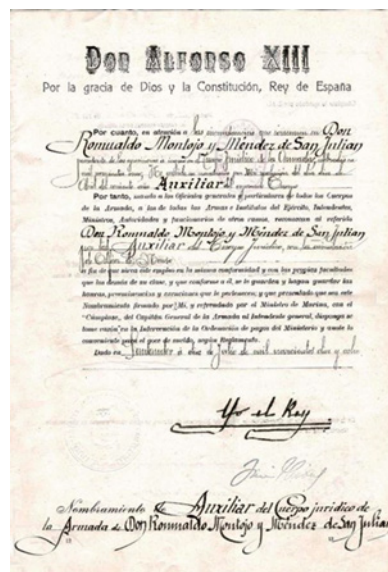 Don Alfonso XIII
Por la gracia de Dios y la Constitución, Rey de España
Por cuanto, en atención a las circunstancias que concurren en Don
Romualdo Montojo y Méndez de San Julian
Auxiliar del expresado Cuerpo
Por tanto, mando a los Oficiales generales y particulares de todos los Cuerpos
de la Armada, a los de todas las Armas e Institutos del Ejército, Intendentes,
Ministros, Autoridades y funcionarios de otros ramos, reconozcan al referido
Don Romualdo Montojo y Méndez de San Julian
por tal Auxiliar del Cuerpo Jurídico, con la
a fin de que sirva este empleo en la misma conformidad y con las propias facultades
que los demás de su clase, y que conforme a él, se le guarden y hagan guardar los
honores, preeminencias y exenciones que le pertenecen; y que presentado que sea este
Nombramiento firmado por Mí, y refrendado por el Ministro de Marina, con el
"Cúmplase, del Capitán General de la Armada al Intendente general, disponga se
tome razón en la Intervención de la Ordenación de pagos del Ministerio y
conveniente para el goce de sueldo, según Reglamento.
Dado en Santander a diez de Julio de mil novecientos diez y ocho
Yo el Rey
Nombramiento de Auxiliar del Cuerpo jurídico de
la Armada a Don Romualdo Montojo y Méndez de San Julian